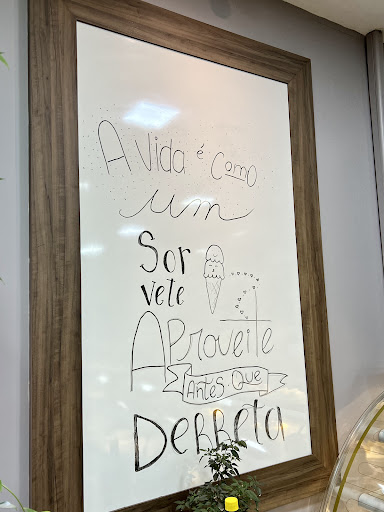 A vida é como
um
Sor
vete
Aproveite
Antes que
Derreta